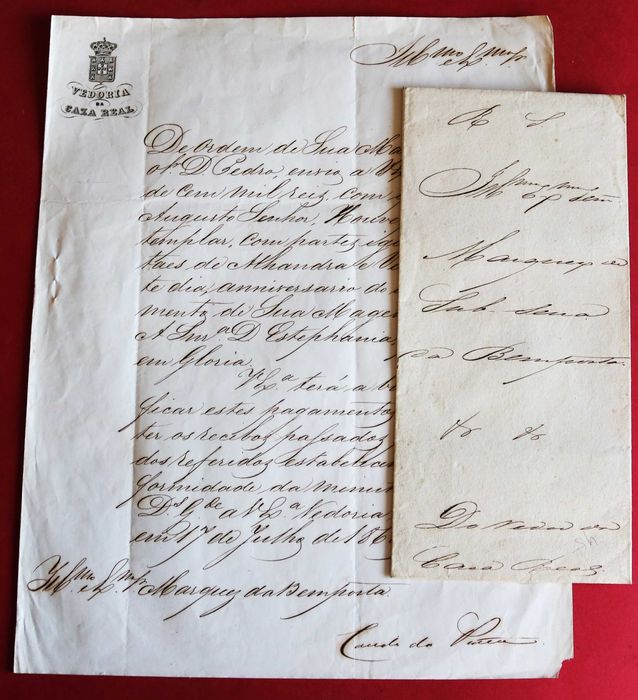 VEDORIA
DA
CAZA REAL
Illmo Exmo Sr
De ordem de Sua Ma
D. Pedro, envio a V
de cem mil reis, com
Augusto Senhor, Houve
templar, com partes igu
taes de Alhandra e
te dia, anniversario do
mento de Sua Mages
A Snra D. Estephania
em Gloria.
V Exa terá a b
ficar estes pagamentos
ter os recibos passados
dos referidos estabeleci
formidade da minu
Ds Gde a V Exa Vedoria
em 17 de Julho de 186
Illmo Exmo Sr Marquez da Bemposta
Conde da
R S
Illmo Exmo Senr
Marquez da
Bemposta
Do Vedor da
Casa Real